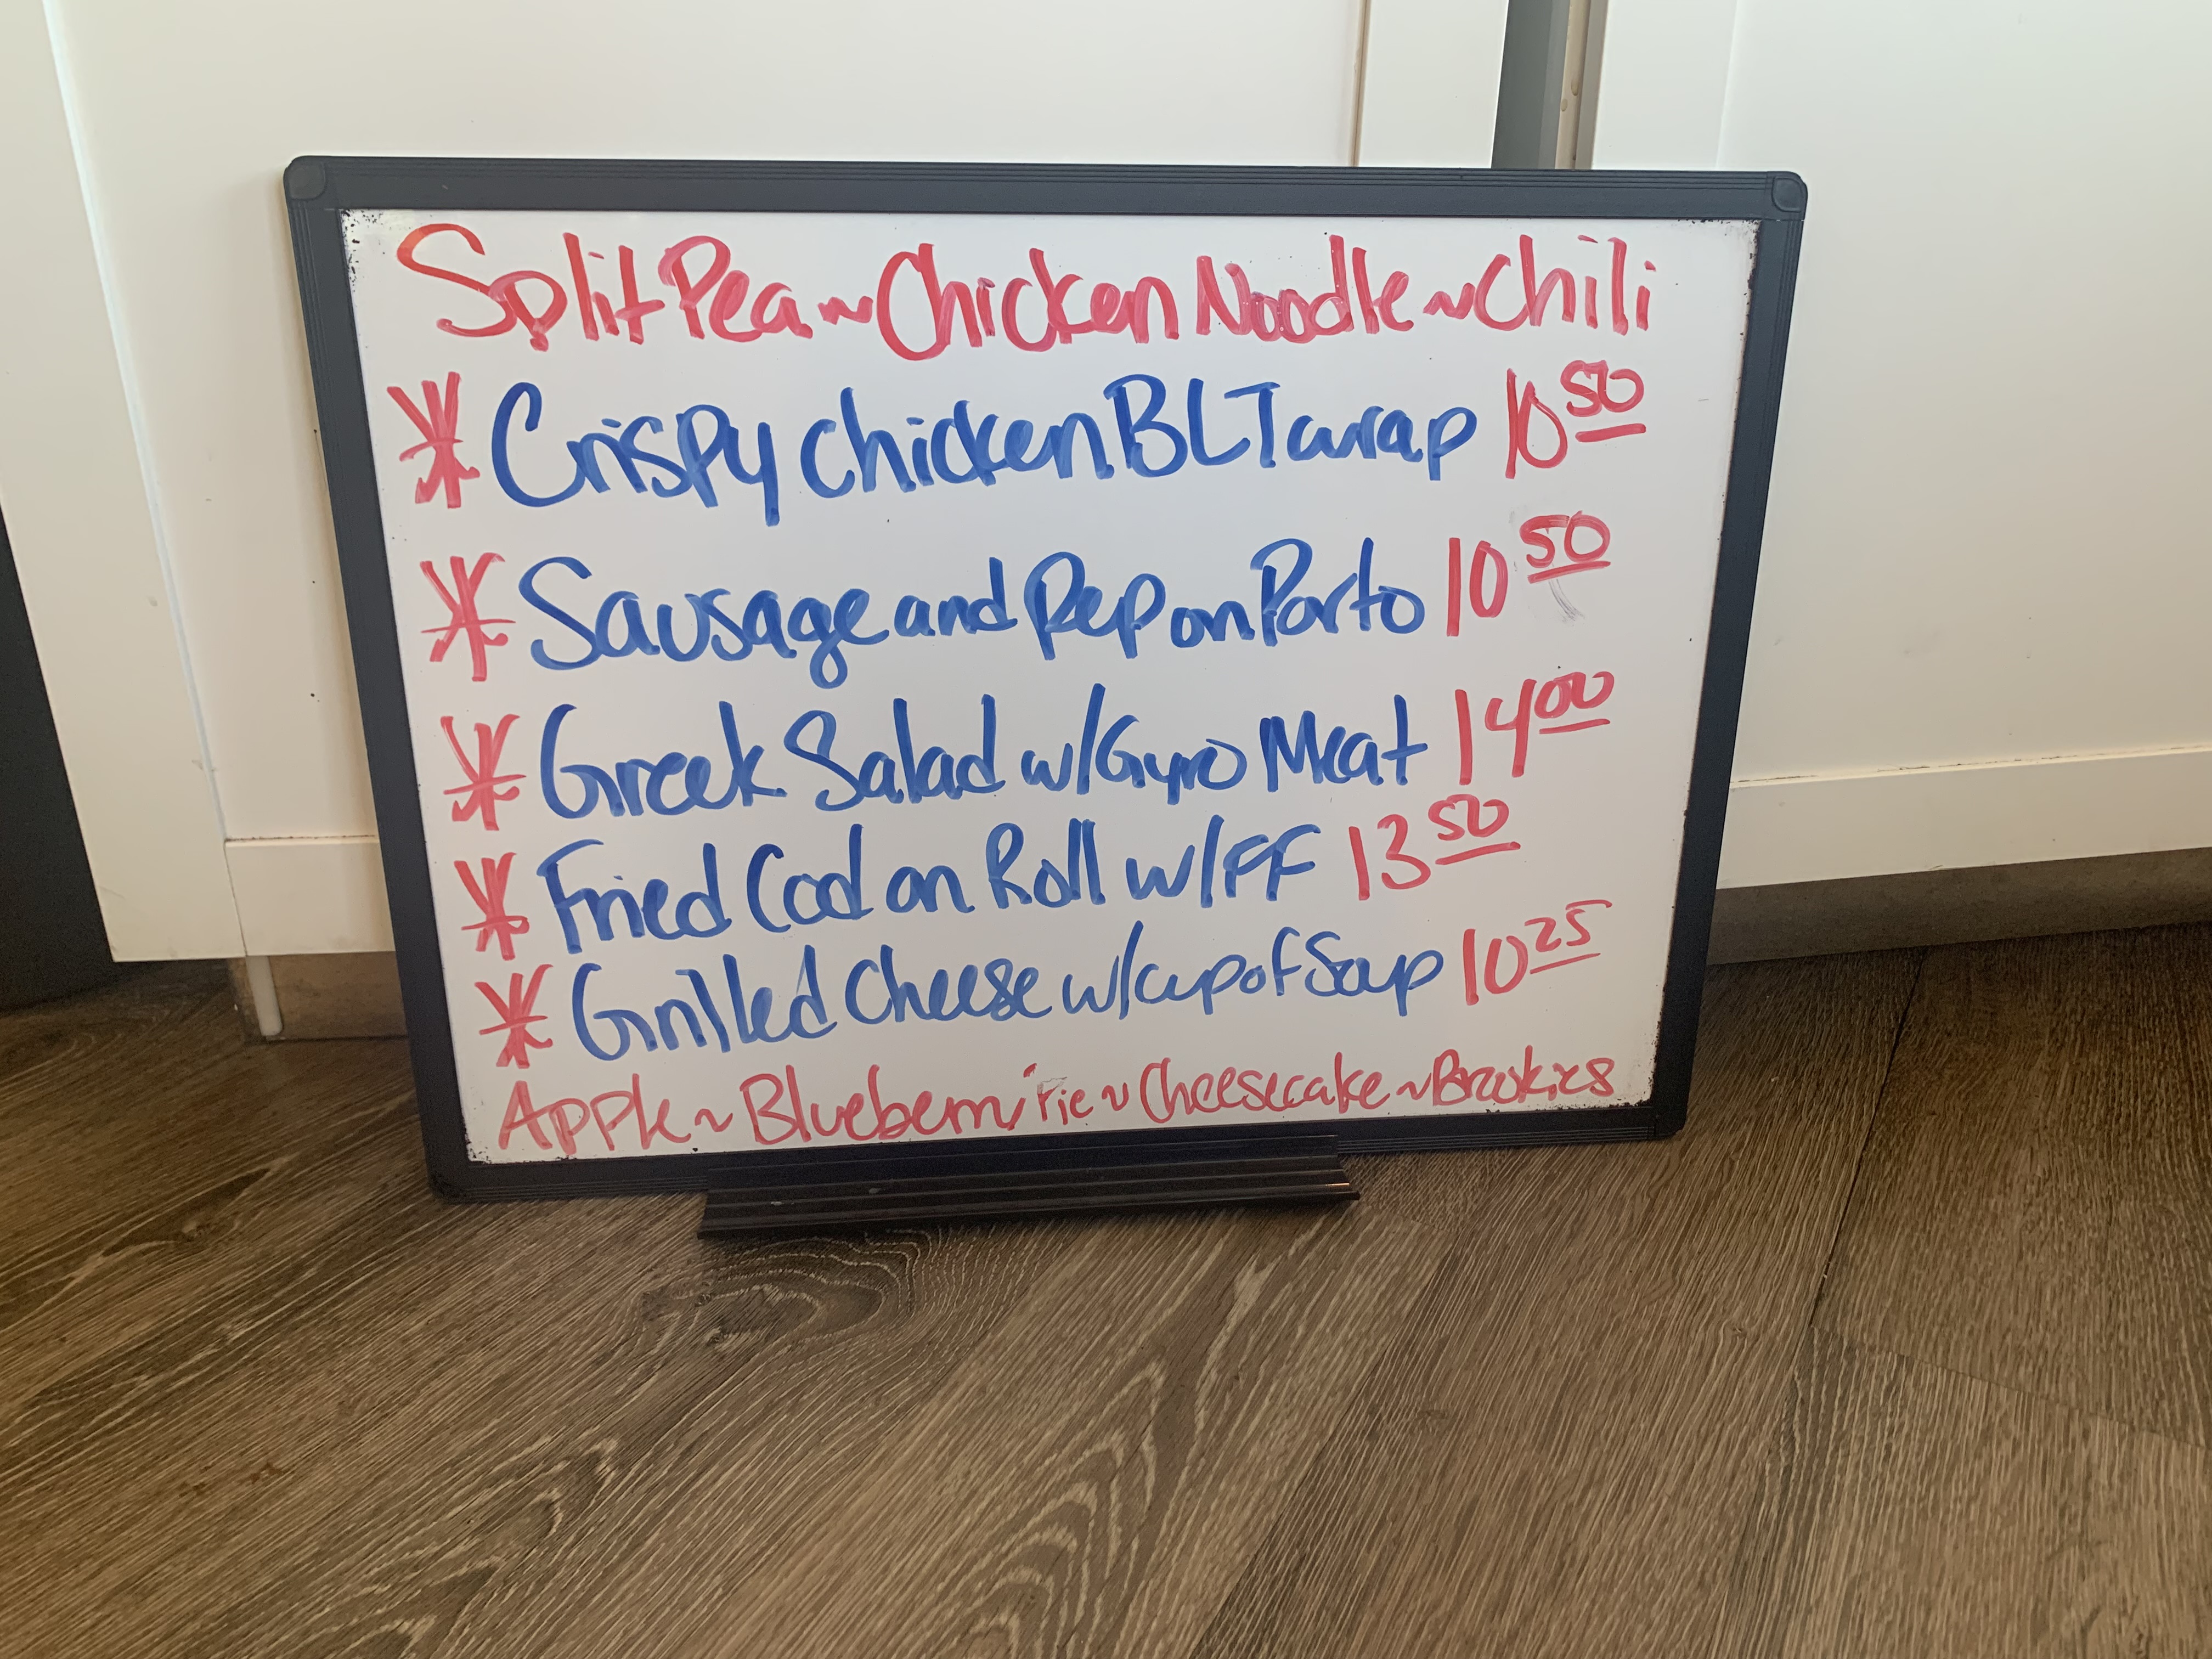 Split Pea ~ Chicken Noodle ~ Chili
* Crispy Chicken BLT wrap 10 50
* Sausage and Pep on Porto 10 50
* Greek Salad w/Gyro Meat 14 00
* Fried Cod on Roll w/FF 13 50
* Grilled Cheese w/cup of Soup 10 25
Apple ~ Blueberry Pie ~ Cheesecake ~ Brookies